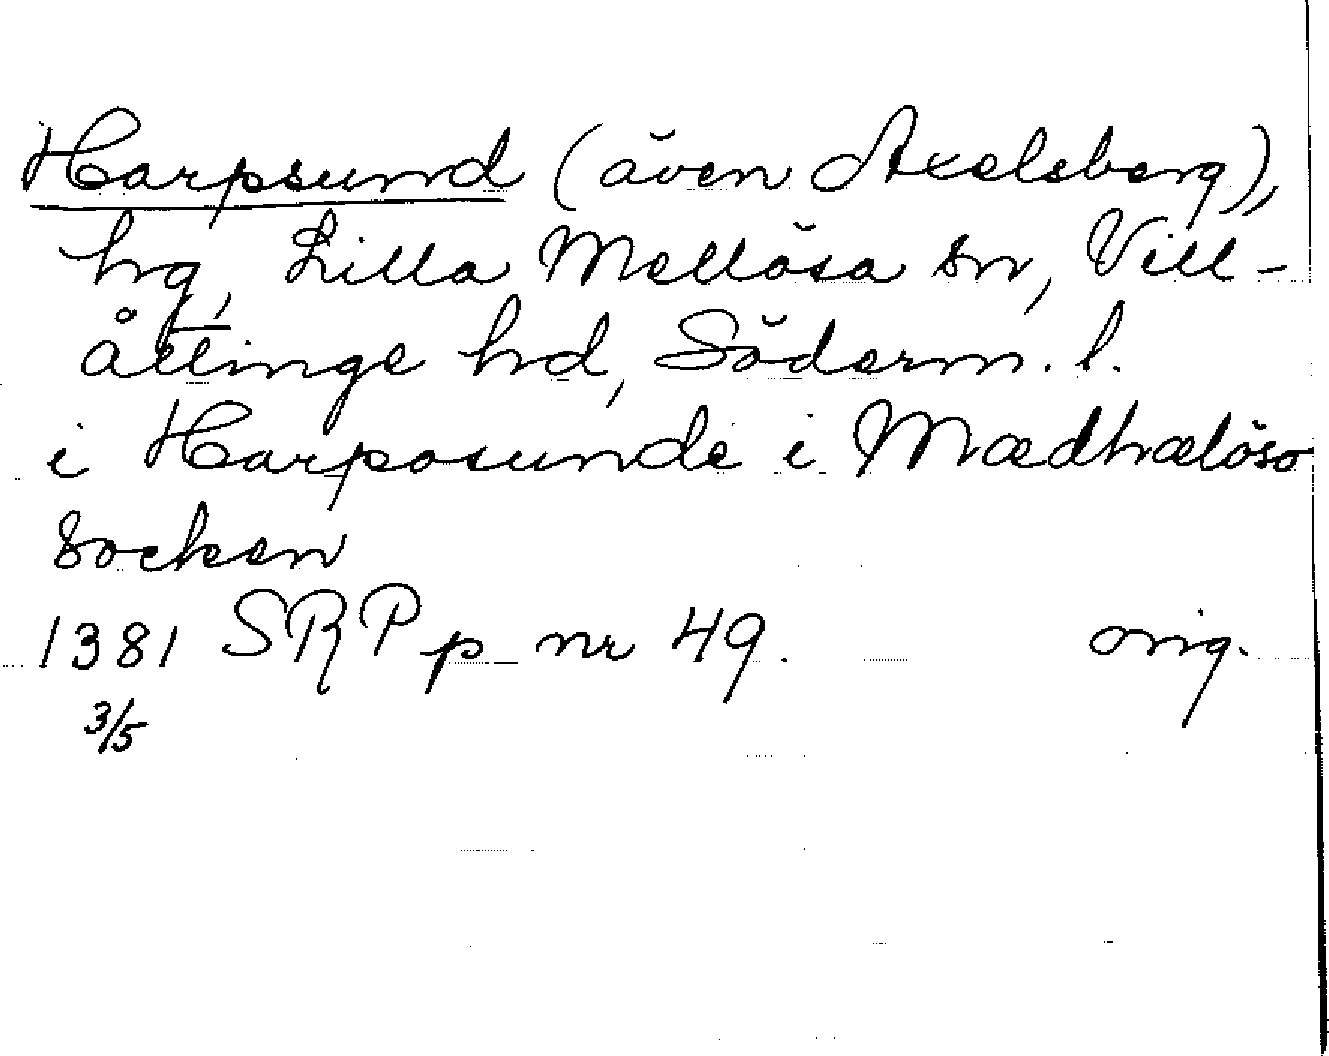 Harpsund (även Axelsberg),
hg, Lilla Mellösa sn, Vill-
åttinge hd, Söderm. l.
i Harposunde i Mædhælöso
Socken
1381 SRP p nr 49. orig.
3/5